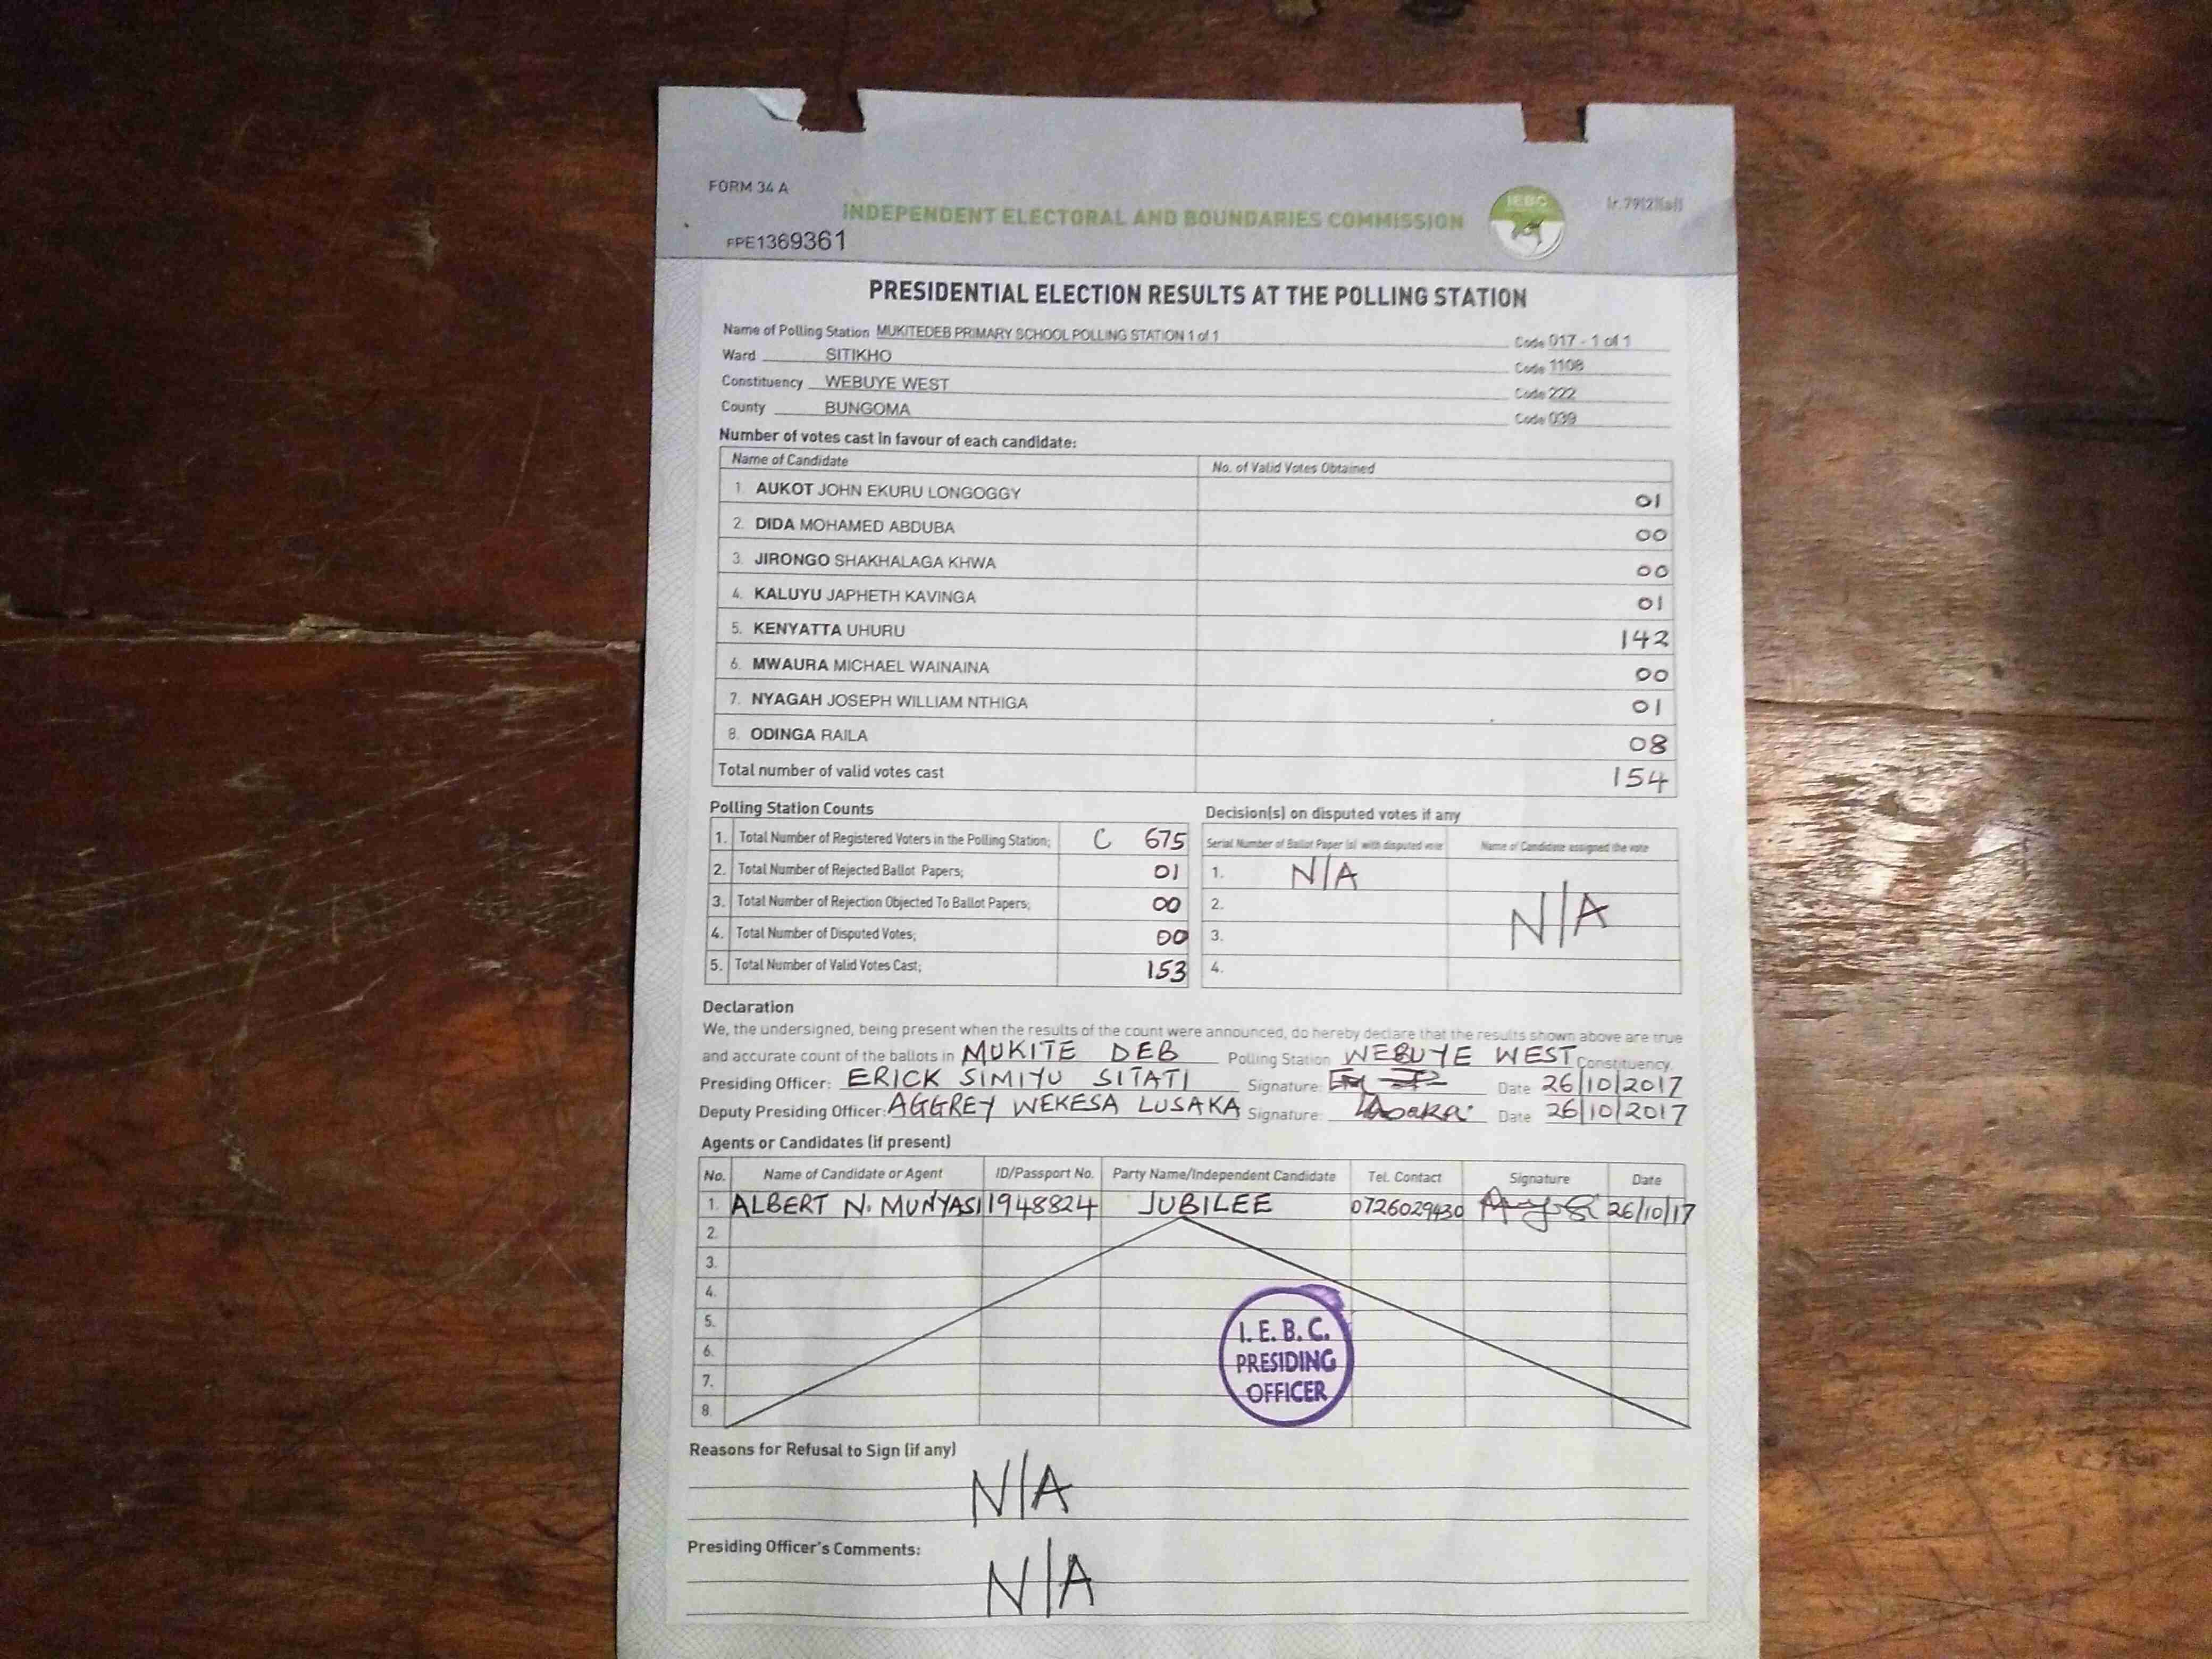 FORM 34 A
INDEPENDENT ELECTORAL AND BOUNDARIES COMMISSION
IEBC
(r.79(2)(a))
FPE1369361
PRESIDENTIAL ELECTION RESULTS AT THE POLLING STATION
Name of Polling Station MUKITEDEB PRIMARY SCHOOL POLLING STATION 1 of 1 Code 017 - 1 of 1
Ward SITIKHO Code 1108
Constituency WEBUYE WEST Code 222
County BUNGOMA Code 039
Number of votes cast in favour of each candidate:
Name of Candidate No. of Valid Votes Obtained
1. AUKOT JOHN EKURU LONGOGGY 01
2. DIDA MOHAMED ABDUBA 00
3. JIRONGO SHAKHALAGA KHWA 00
4. KALUYU JAPHETH KAVINGA 01
5. KENYATTA UHURU 142
6. MWAURA MICHAEL WAINAINA 00
7. NYAGAH JOSEPH WILLIAM NTHIGA 01
8. ODINGA RAILA 08
Total number of valid votes cast 154
Polling Station Counts
1. Total Number of Registered Voters in the Polling Station; C 675
2. Total Number of Rejected Ballot Papers; 01
3. Total Number of Rejection Objected To Ballot Papers; 00
4. Total Number of Disputed Votes; 00
5. Total Number of Valid Votes Cast; 153
Decision(s) on disputed votes if any
Serial Number of Ballot Paper (s) with disputed vote Name of Candidate assigned the vote
1. N/A
2. N/A
3.
4.
Declaration
We, the undersigned, being present when the results of the count were announced, do hereby declare that the results shown above are true
and accurate count of the ballots in MUKITE DEB Polling Station WEBUYE WEST Constituency
Presiding Officer: ERICK SIMIYU SITATI Signature: Date 26/10/2017
Deputy Presiding Officer: AGGREY WEKESA LUSAKA Signature: Date 26/10/2017
Agents or Candidates (if present)
No. Name of Candidate or Agent ID/Passport No. Party Name/Independent Candidate Tel. Contact Signature Date
1. ALBERT N. MUNYASI 1948824 JUBILEE 0726029430 26/10/17
2.
3.
4.
5.
6.
7.
8.
I. E. B. C.
PRESIDING
OFFICER
Reasons for Refusal to Sign (if any)
N/A
Presiding Officer's Comments:
N/A